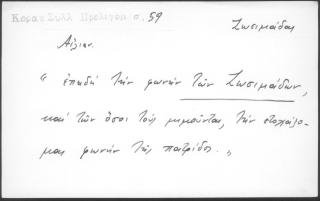 Κοραη Συλλ Προλεγομ σ. 59
Ζωσιμάδαι
Αἰλιαν.
"ἐπειδὴ τὴν φωνὴν τῶν Ζωσιμάδων,
καὶ τῶν ὅσοι τοὺς μιμοῦνται, τὴν στοχάζο-
μαι φωνὴν τῆς πατρίδος."